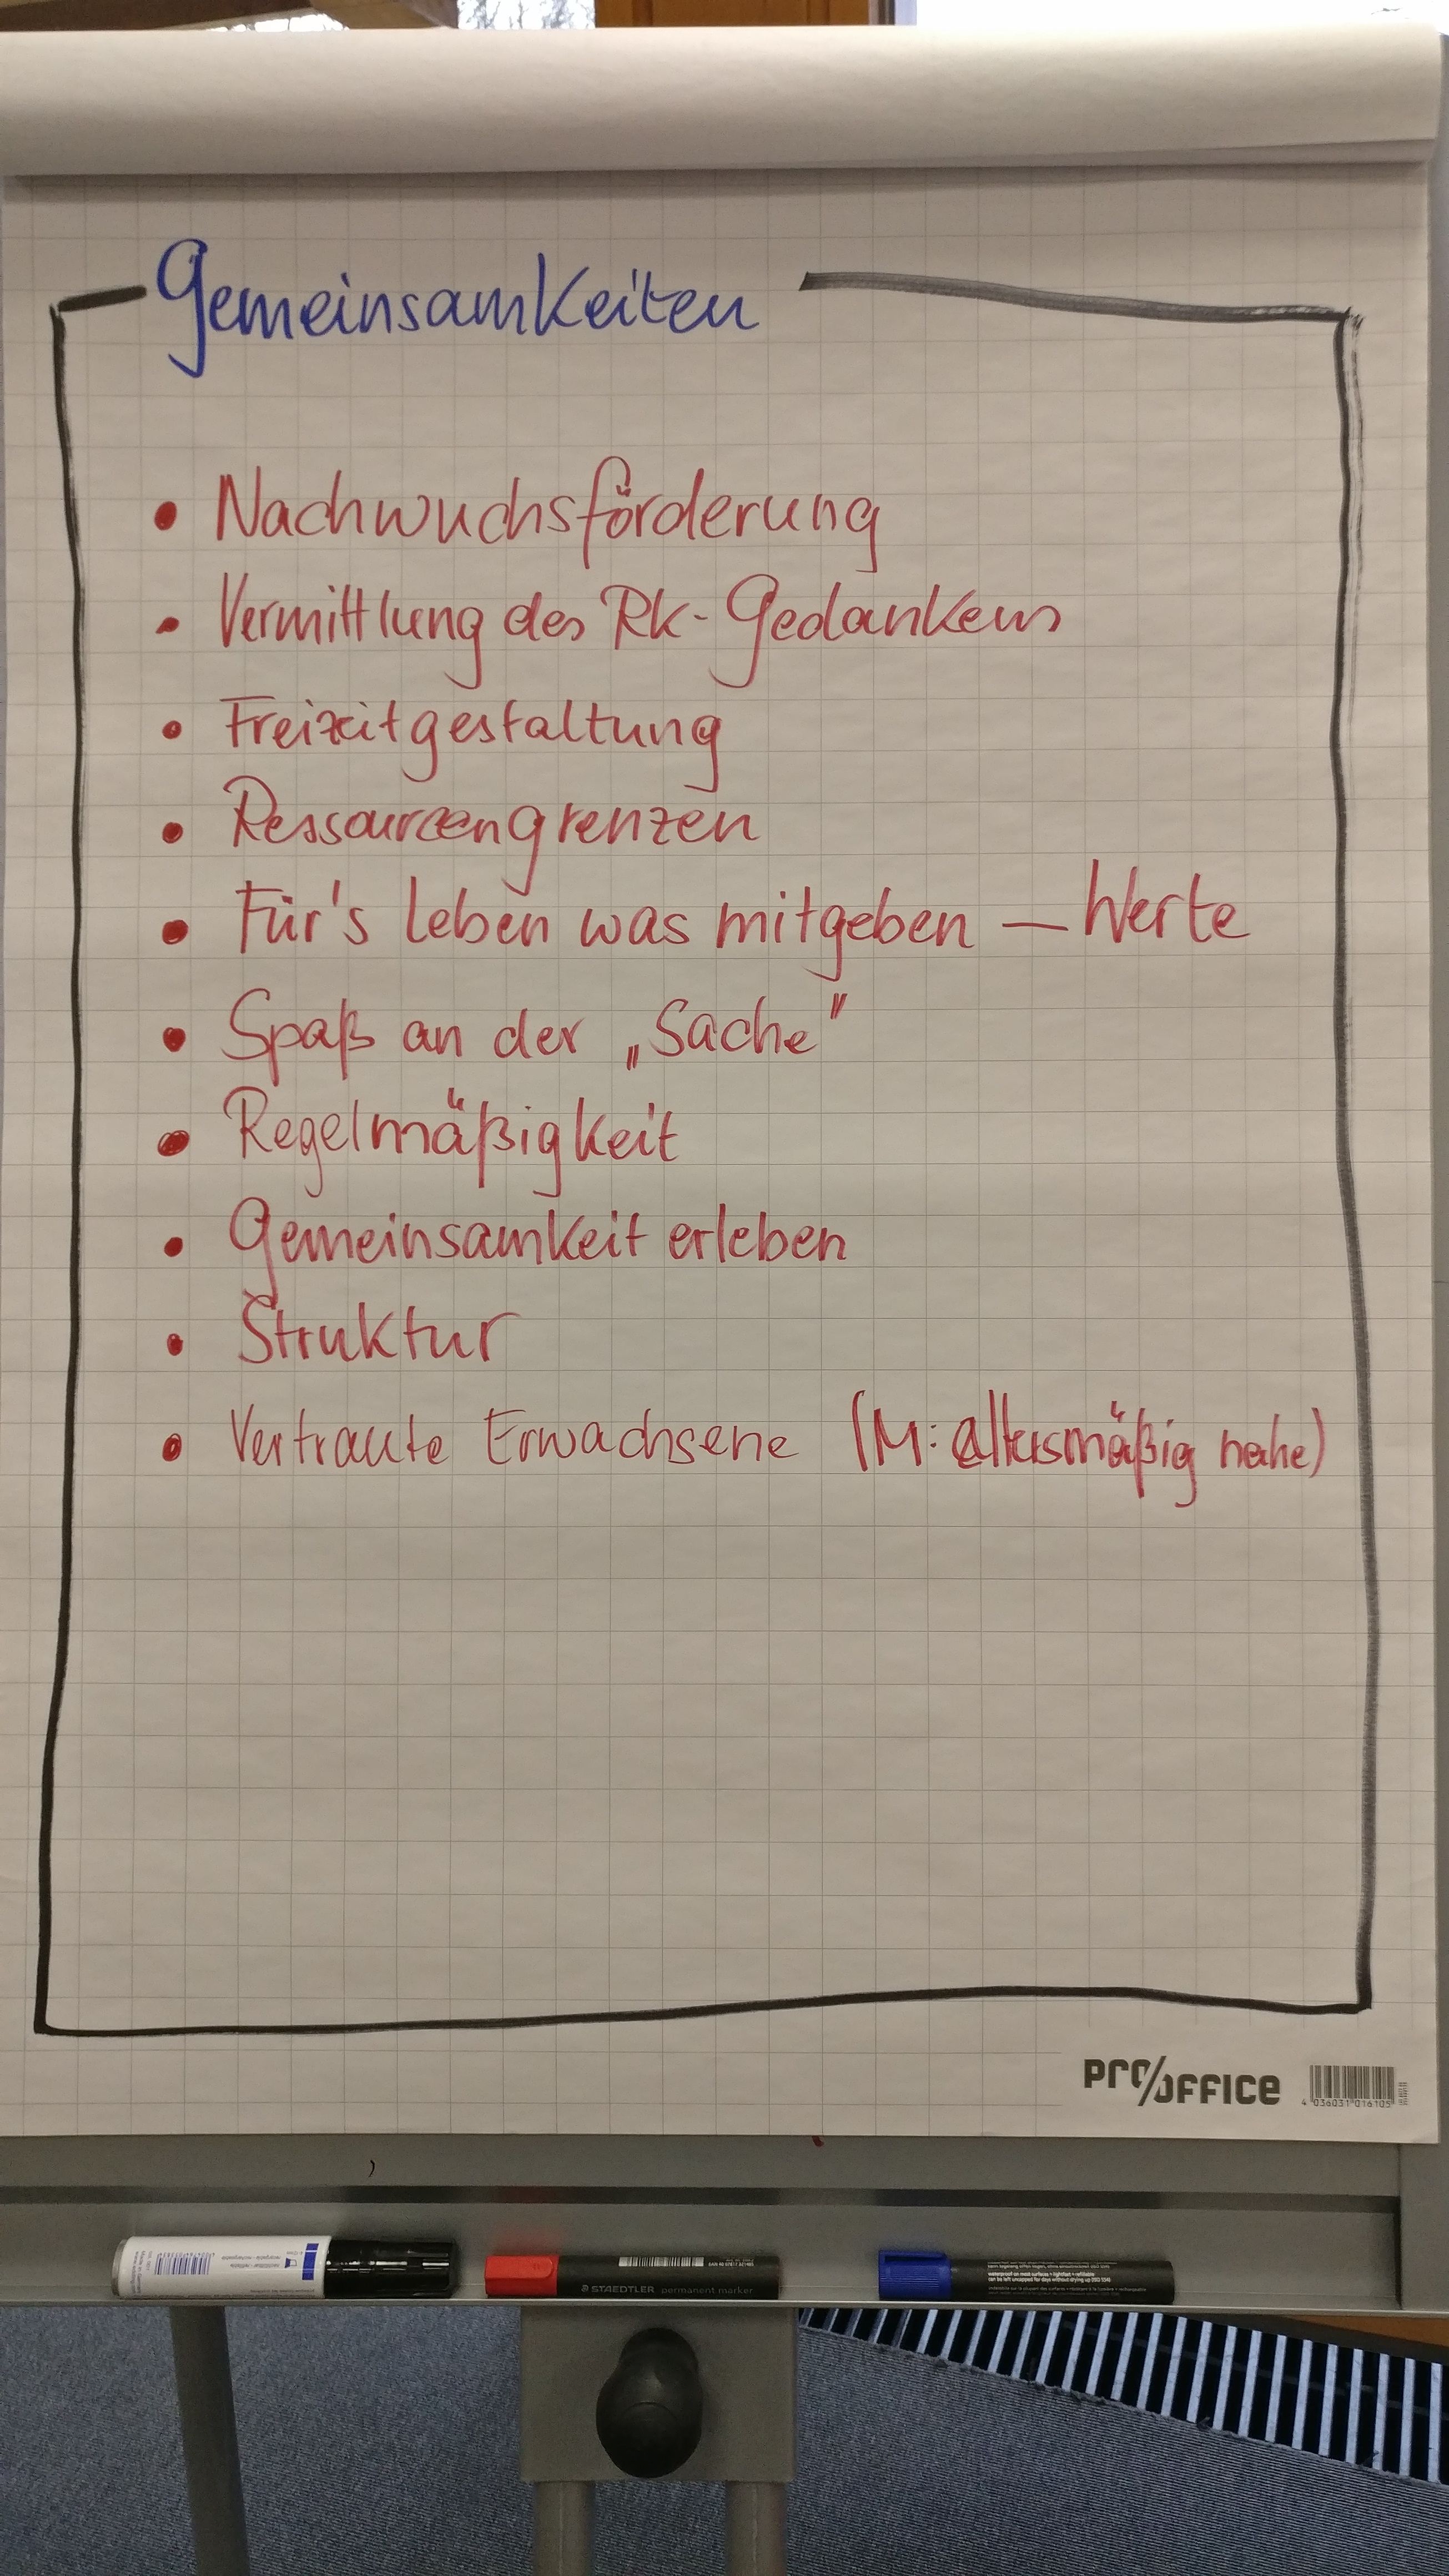 Gemeinsamkeiten
• Nachwuchsförderung
• Vermittlung des RK-Gedankens
• Freizeitgestaltung
• Ressourcengrenzen
• Für's Leben was mitgeben — Werte
• Spaß an der „Sache"
• Regelmäßigkeit
• Gemeinsamkeit erleben
• Struktur
• Vertraute Erwachsene (M: altersmäßig nahe)
PRO/OFFICE
4 036031 016105
STAEDTLER permanent marker